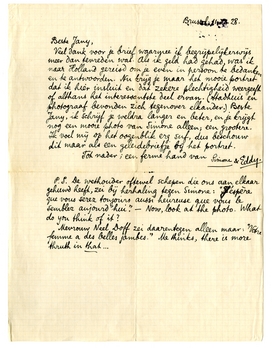 Brussel 28.
Beste Jany,
Veel dank voor je brief, waarmee ik begrijpelijkerwijs
meer dan tevreden was. Als ik geld had gehad, was ik
naar Holland gereisd om je even in persoon te bedanken
en te antwoorden. Nu krijg je maar het mooie portret
dat ik hier insluit en dat zekere plechtigheid vergeeft
of althans het interessantste deel ervan. (Stadhuis en
photograaf bevonden zich tegenover elkander.) Beste
Jany, ik schrijf je weldra langer en beter, en je krijgt
nog een mooie photo van Simone alleen, een grootere.
Ik voel mij op het oogenblik erg suf, dus beschouw
dit maar als een geleidebriefje bij het portret.
Tot nader; een ferme hand van
Simone & Eddy.
P.S. De wethouder oftewel schepen die ons aan elkaar
gehuwd heeft, zei bij herhaling tegen Simone: "J'espère
que vous serez toujours aussi heureuse que vous le
semblez aujourd'hui." — Now, look at the photo. What
do you think of it?
Mevrouw Neel Doff zei daarentegen alleen maar: "Votre
femme a des belles jambes." Me thinks, there is more
thruth in that...